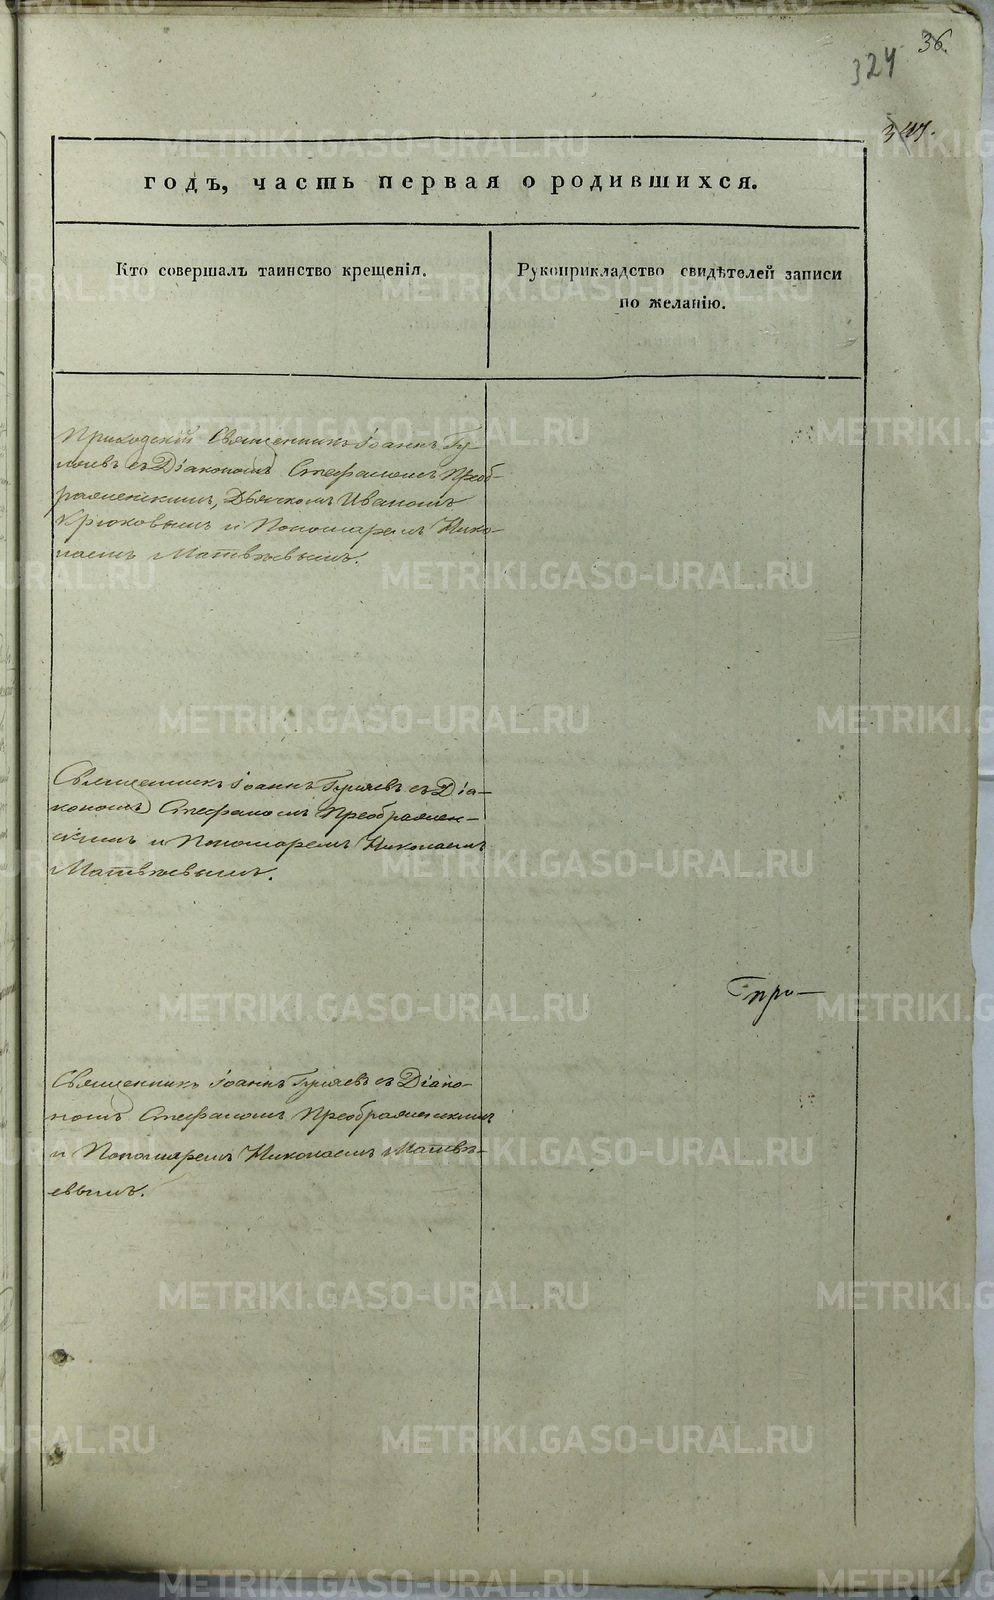 36.
324
347.
годъ, часть первая о родившихся.
Кто совершалъ таинство крещенія.
Рукоприкладство свидѣтелей записи
по желанію.
Приходскій Священникъ Іоаннъ Гу-
ляевъ съ Діакономъ Стефаномъ Преоб-
раженскимъ, Дьячкомъ Иваномъ
Крюковымъ и Пономаремъ Нико-
лаемъ Матвѣевымъ.
Священникъ Іоаннъ Гуляевъ съ Діа-
кономъ Стефаномъ Преображен-
скимъ и Пономаремъ Николаемъ
Матвѣевымъ.
Священникъ Іоаннъ Гуляевъ съ Діако-
номъ Стефаномъ Преображенскимъ
и Пономаремъ Николаемъ Матвѣ-
евымъ.
METRIKI.GASO-URAL.RU